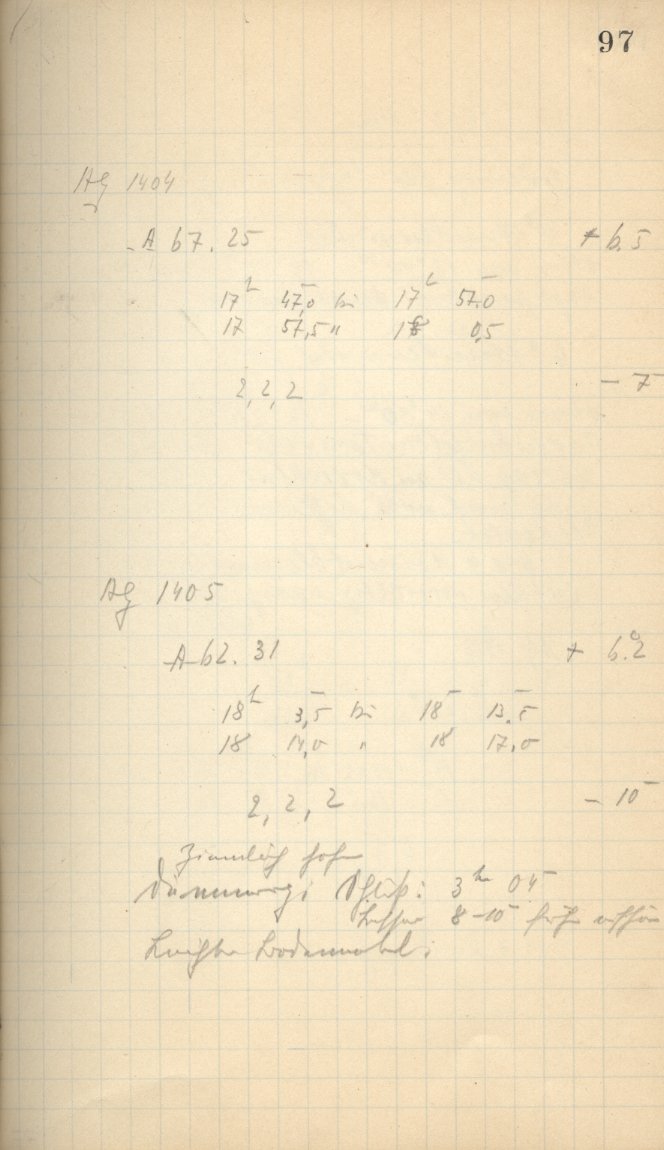 97
AG 1404
A 67.25 + 6.5
17h 47,0 bis 17h 57,0
17 57,5 " 18 0,5
2, 2, 2 - 7
AG 1405
A 62.31 + 6.°2
18h 3,5 bis 18 13,5
18 14,0 " 18 17,0
2, 2, 2 - 10
Ziemlich hohe
Dämmerg; Schluß: 3h 05
besser 8-10 früher
Leichter Bodennebel.